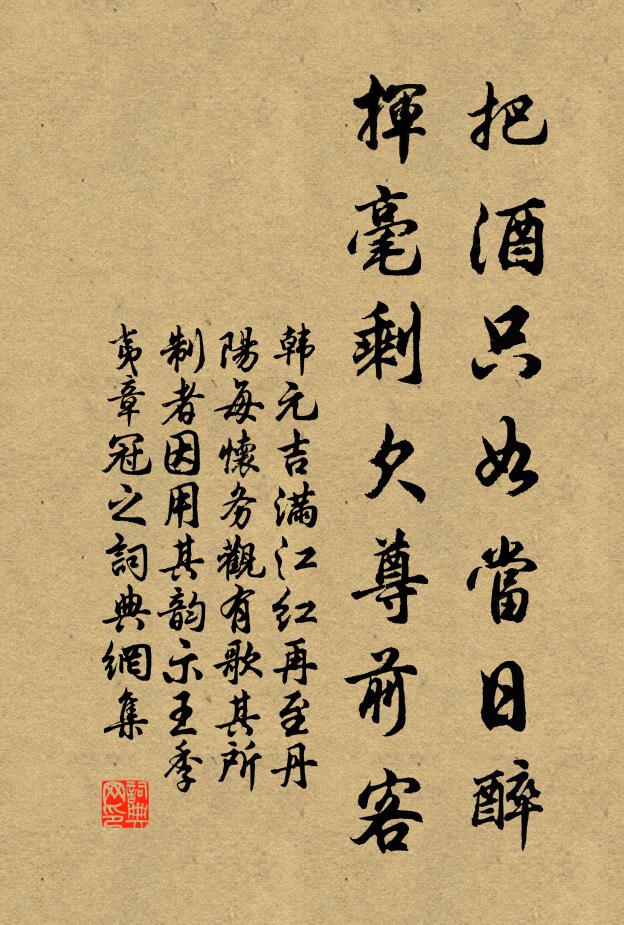 把酒只如當日醉
揮毫剩欠尊前客
韩元吉满江红再至丹
陽每懷务觀有歌其所
制者因用其韵示王季
夷章冠之詞典網集
詞典
网印